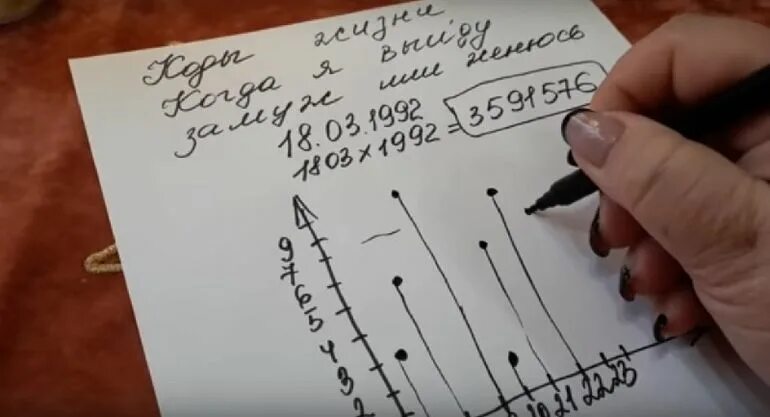 Коды жизни
Когда я выйду
замуж или женюсь
18.03.1992
1803 x 1992 = 3591576
9
7
6
5
4
3
2
10 21 22 23